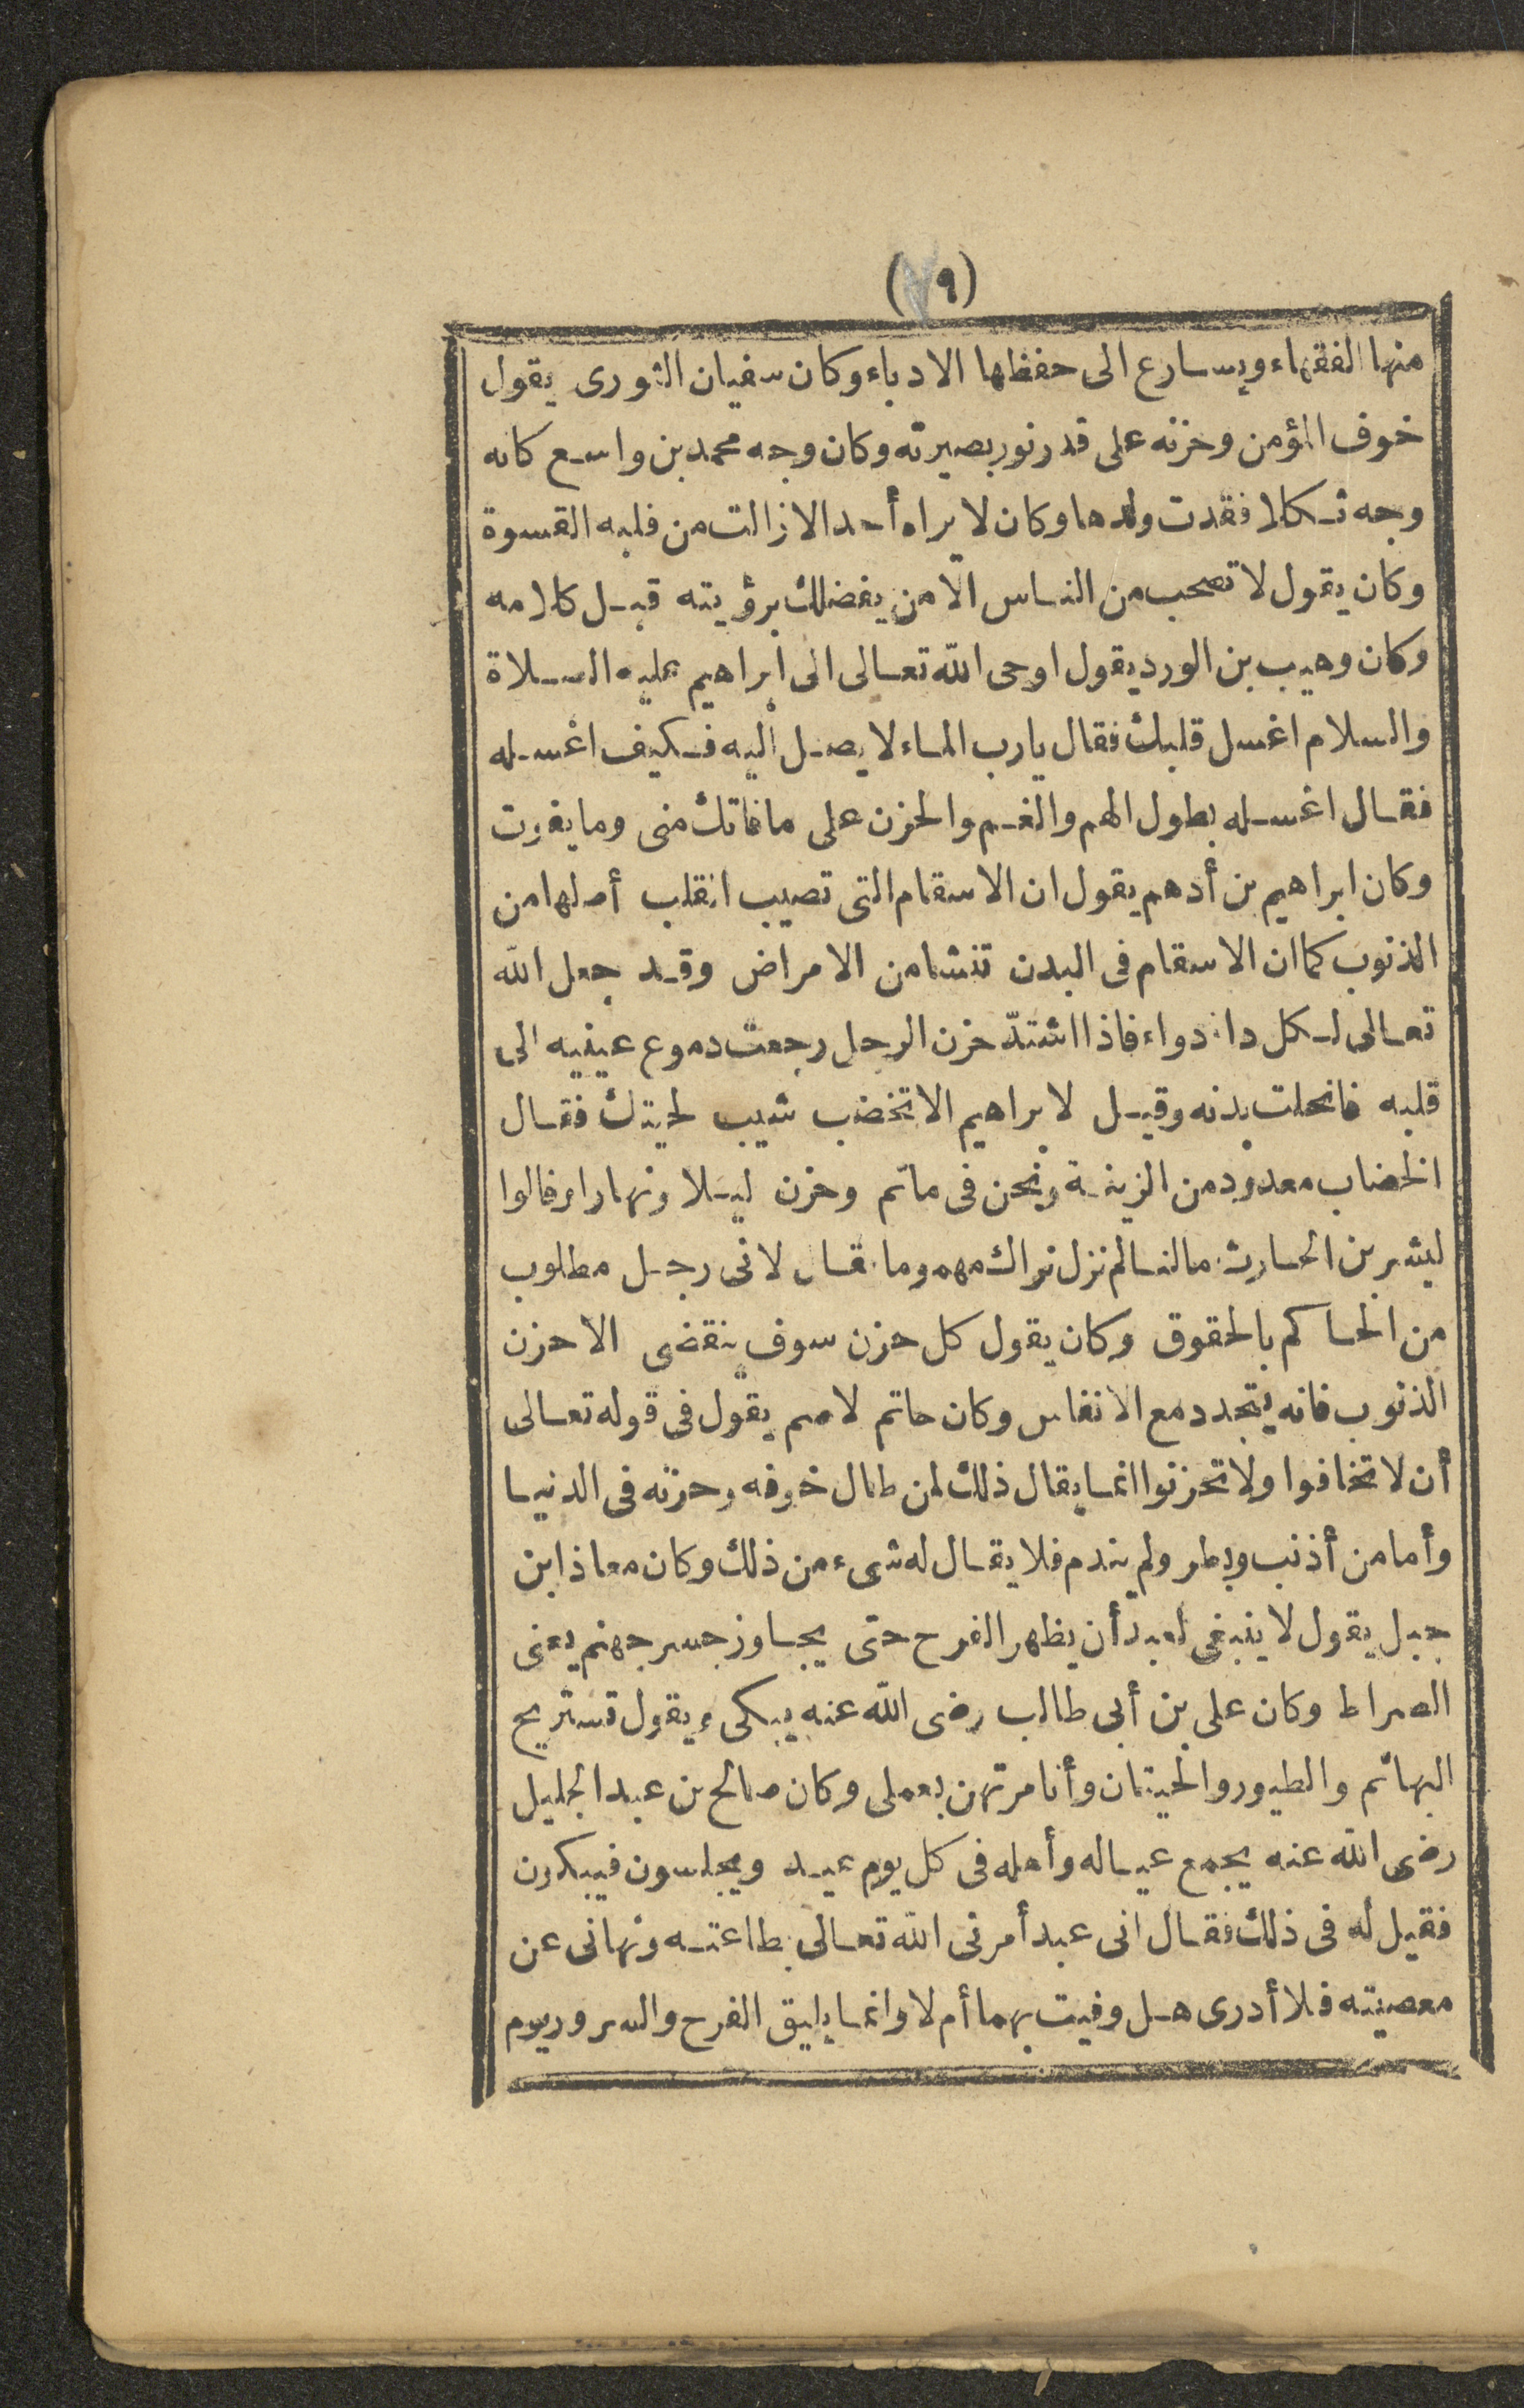 (٧٩)
منها الفقهاء ويسارع الى حفظها الادباء وكان سفيان الثورى يقول
خوف المؤمن وحزنه على قدر نور بصيرته وكان وجه محمد بن واسع كانه
وجه ثكلا فقدت ولدها وكان لا يراه أحد الا زالت من قلبه القسوة
وكان يقول لا تصحب من الناس الا من يفضلك برؤيته قبل كلامه
وكان وهيب بن الورد يقول اوحى الله تعالى الى ابراهيم عليه الصلاة
والسلام اغسل قلبك فقال يارب الماء لا يصل اليه فكيف اغسله
فقال اغسله بطول الهم والغم والحزن على ما فاتك منى وما يفوت
وكان ابراهيم بن أدهم يقول ان الاسقام التى تصيب القلب أصلها من
الذنوب كما ان الاسقام فى البدن تنشا من الامراض وقد جعل الله
تعالى لكل داء دواء فاذا اشتد حزن الرجل رجعت دموع عينيه الى
قلبه فانحلت بدنه وقيل لابراهيم الا تخضب شيب لحيتك فقال
الخضاب معدود من الزينة ونحن فى ماتم وحزن ليلا ونهارا وقالوا
لبشر بن الحارث ما لنا لم نزل نراك مهموما قال لانى رجل مطلوب
من الحاكم بالحقوق وكان يقول كل حزن سوف ينقضى الا حزن
الذنوب فانه يتجدد مع الانفاس وكان حاتم لاصم يقول فى قوله تعالى
أن لا تخافوا ولا تحزنوا انما يقال ذلك لمن طال خوفه وحزنه فى الدنيا
وأما من أذنب وبطر ولم يندم فلا يقال له شىء من ذلك وكان معاذ ابن
جبل يقول لا ينبغى لعبد أن يظهر الفرح حتى يجاوز جسر جهنم يعنى
الصراط وكان على بن أبى طالب رضى الله عنه يبكى ويقول تستريح
البهائم والطيور والحيتان وأنا مرتهن بعملى وكان صالح بن عبد الجليل
رضى الله عنه يجمع عياله وأهله فى كل يوم عيد ويجلسون فيبكون
فقيل له فى ذلك فقال انى عبد أمرنى الله تعالى بطاعته ونهانى عن
معصيته فلا أدرى هل وفيت بهما أم لا وانما يليق الفرح والسرور يوم